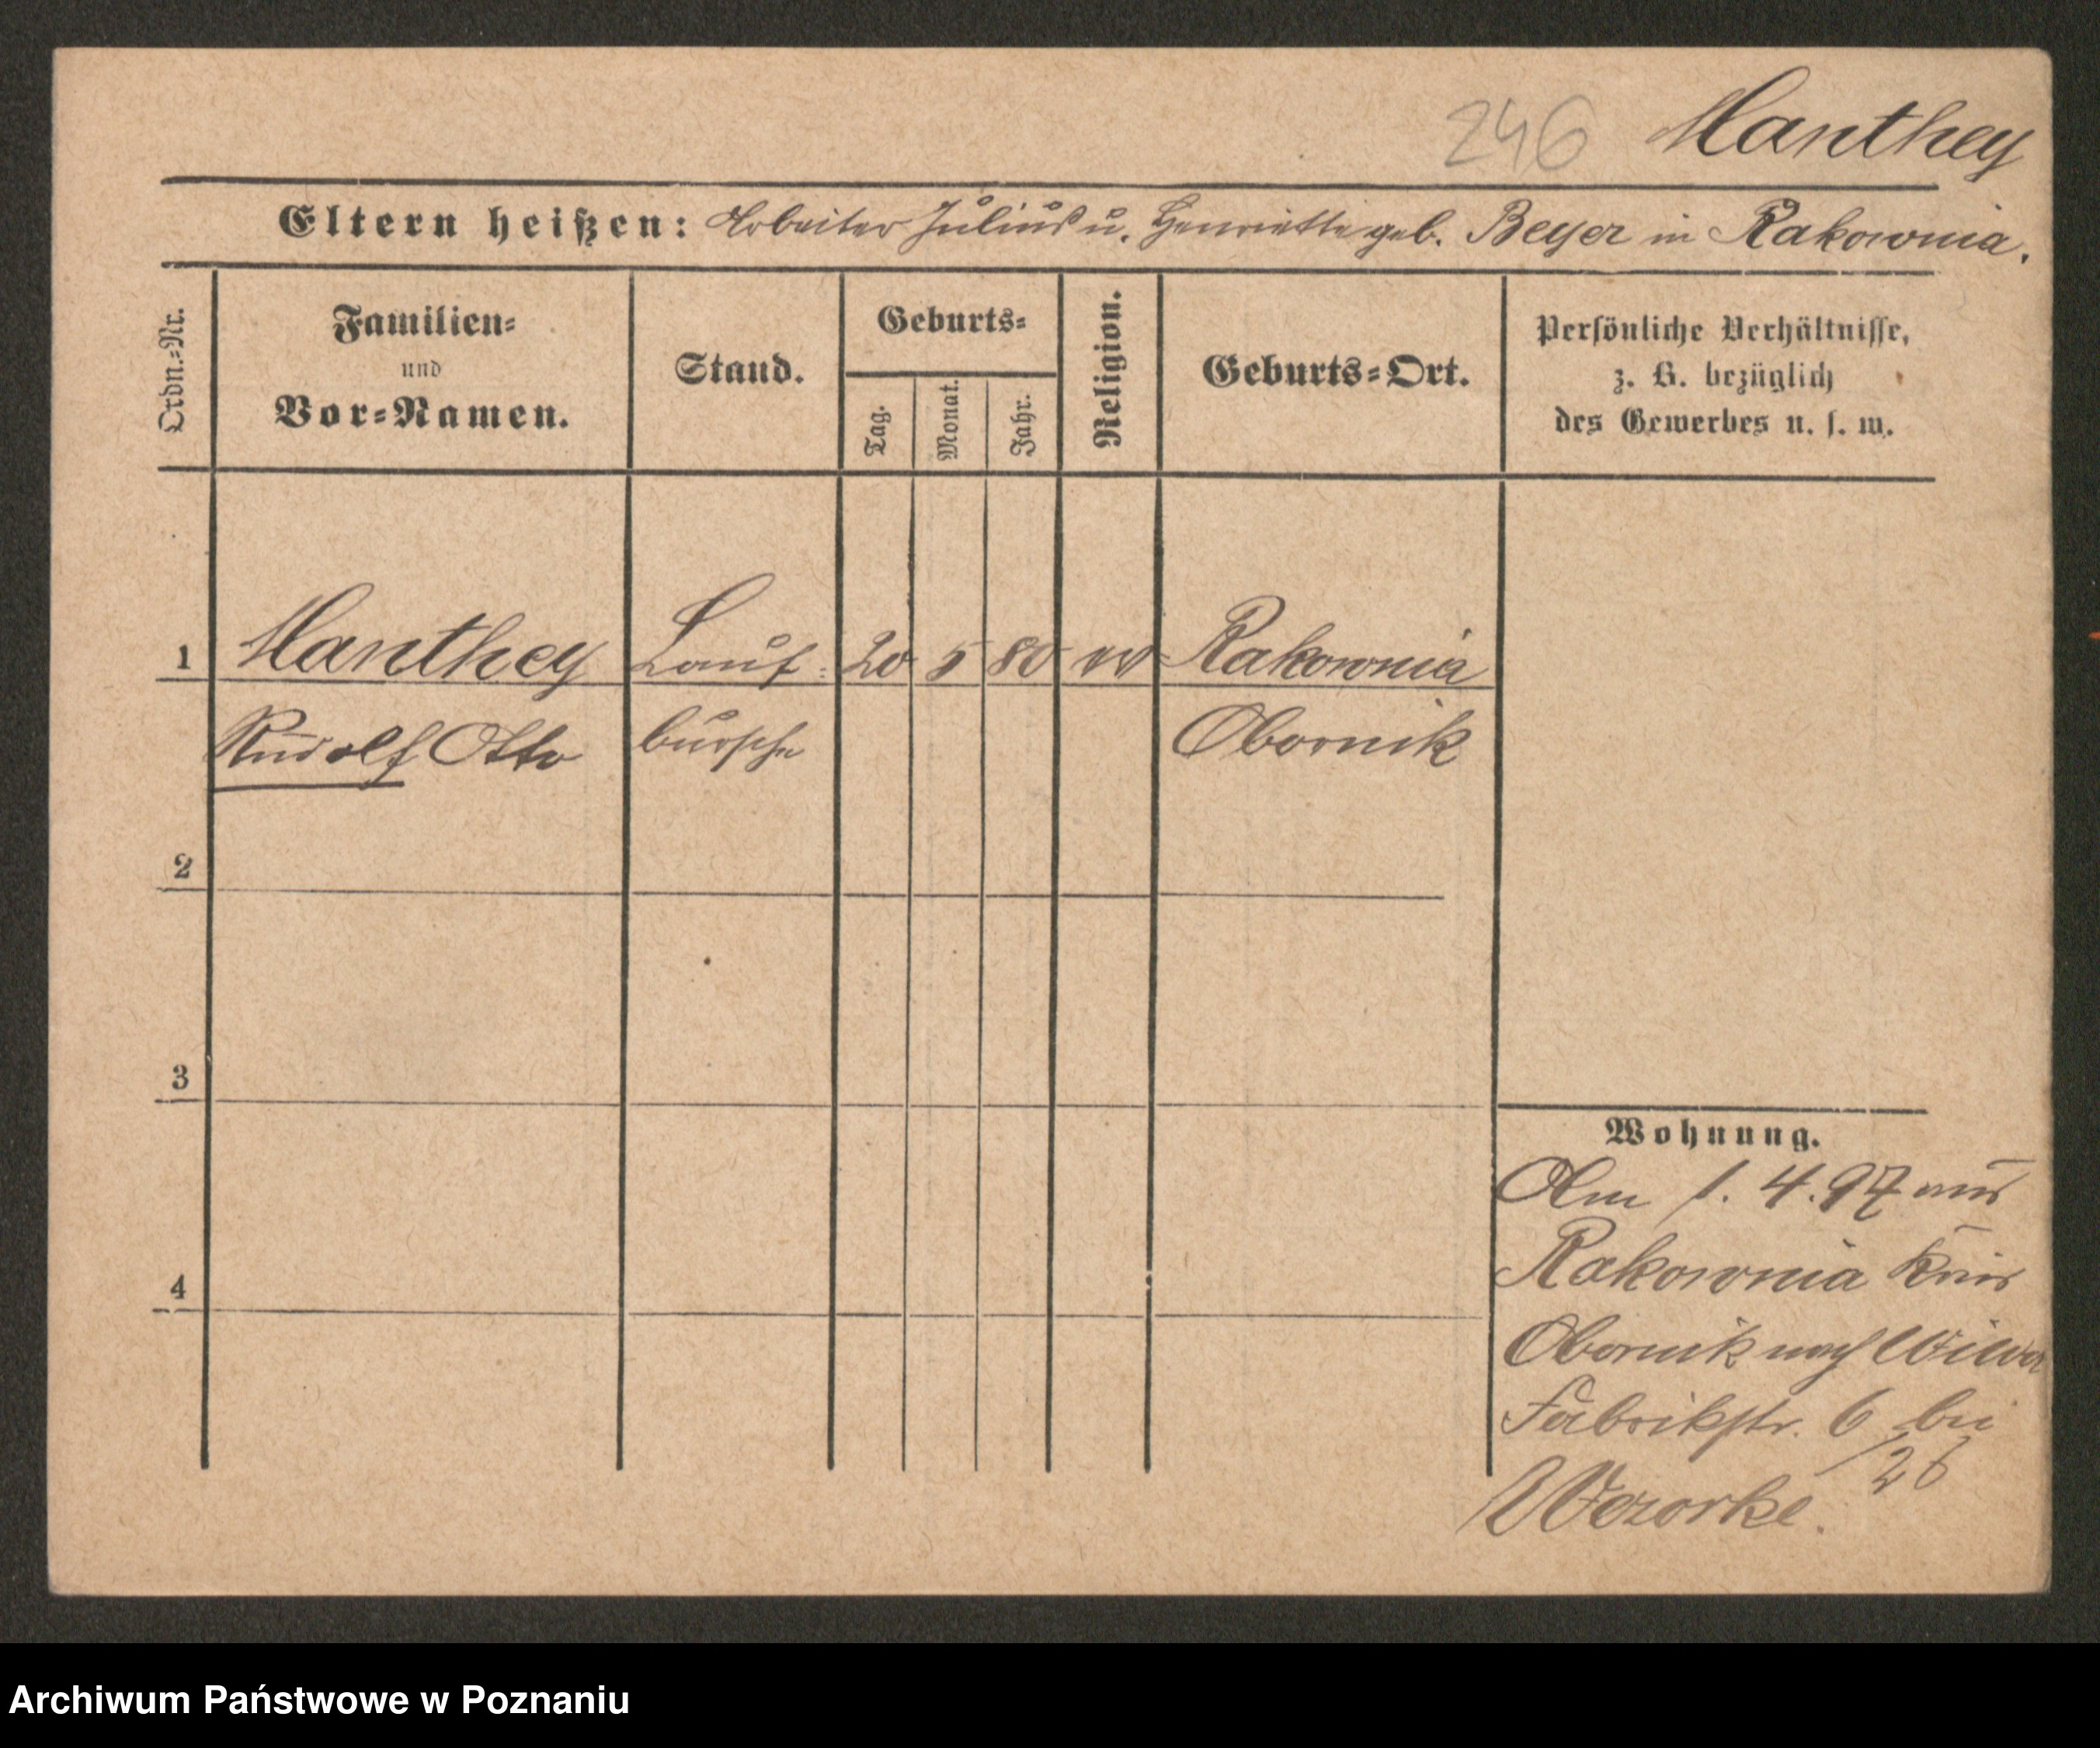 246 Manthey
Eltern heißen: Arbeiter Julius u. Henriette geb. Beyer in Rakownia.
Ordn.=Nr.
Familien=
und
Vor=Namen.
Stand.
Geburts=
Tag.
Monat.
Jahr.
Religion.
Geburts=Ort.
Persönliche Verhältnisse,
z. B. bezüglich
des Gewerbes u. s. w.
1 Manthey Lauf= 20 5 80 ev Rakownia
Rudolf Otto bursche Obornik
2
3
4
Wohnung.
Am 1. 4. 97 aus
Rakownia Kreis
Obornik nach Wilda
Fabrikstr. 6 bei
26
Archiwum Państwowe w Poznaniu